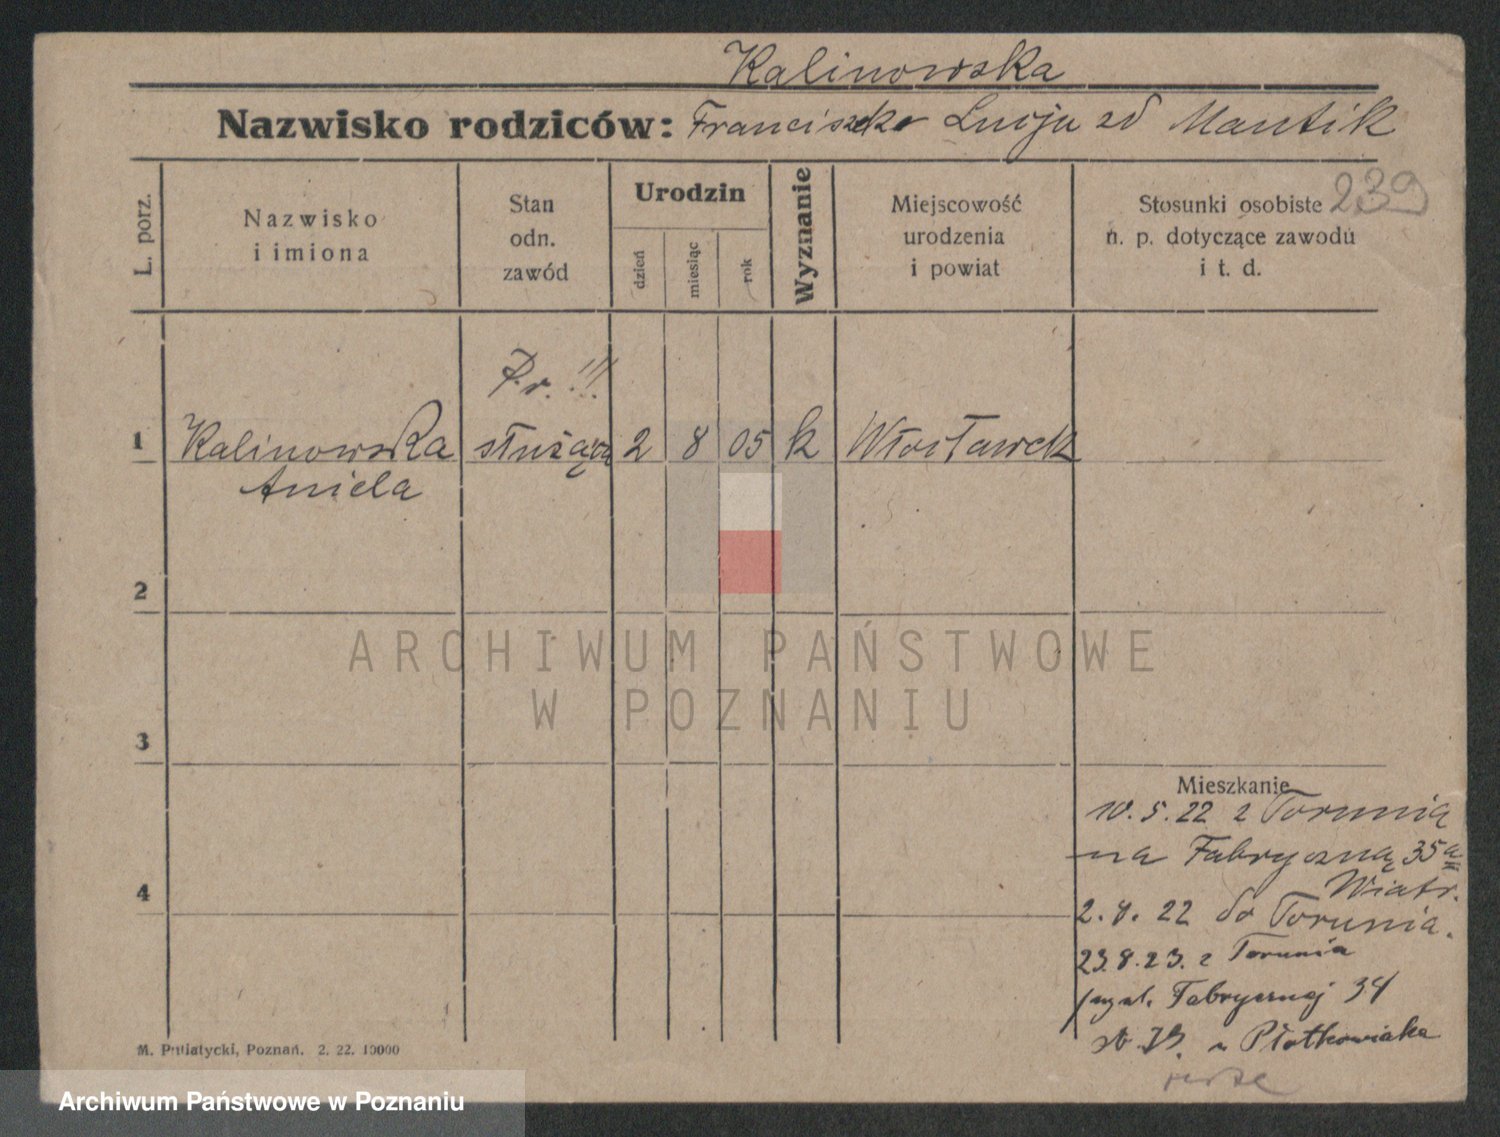 Kalinowska
Nazwisko rodziców: Franciszek Lucja zd Mantik
239
L. porz.
Nazwisko
i imiona
Stan
odn.
zawód
Urodzin
dzień
miesiąc
rok
Wyznanie
Miejscowość
urodzenia
i powiat
Stosunki osobiste
n. p. dotyczące zawodu
i t. d.
Pr. !!!
1 Kalinowska służąca 2 8 05 k Włocławek
Aniela
2
ARCHIWUM PAŃSTWOWE
W POZNANIU
3
Mieszkanie
10.5.22 z Torunia
na Fabryczną 35a
Wiatr.
4
2. 22 do Torunia.
23.8.23. z Torunia
Fabrycznej 34
Płotkowiaka
M. Putiatycki, Poznań. 2. 22. 10000
Archiwum Państwowe w Poznaniu